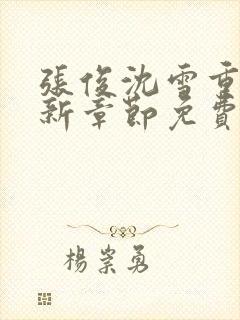 張俊沈雪重
新章節免費
楊崇勇